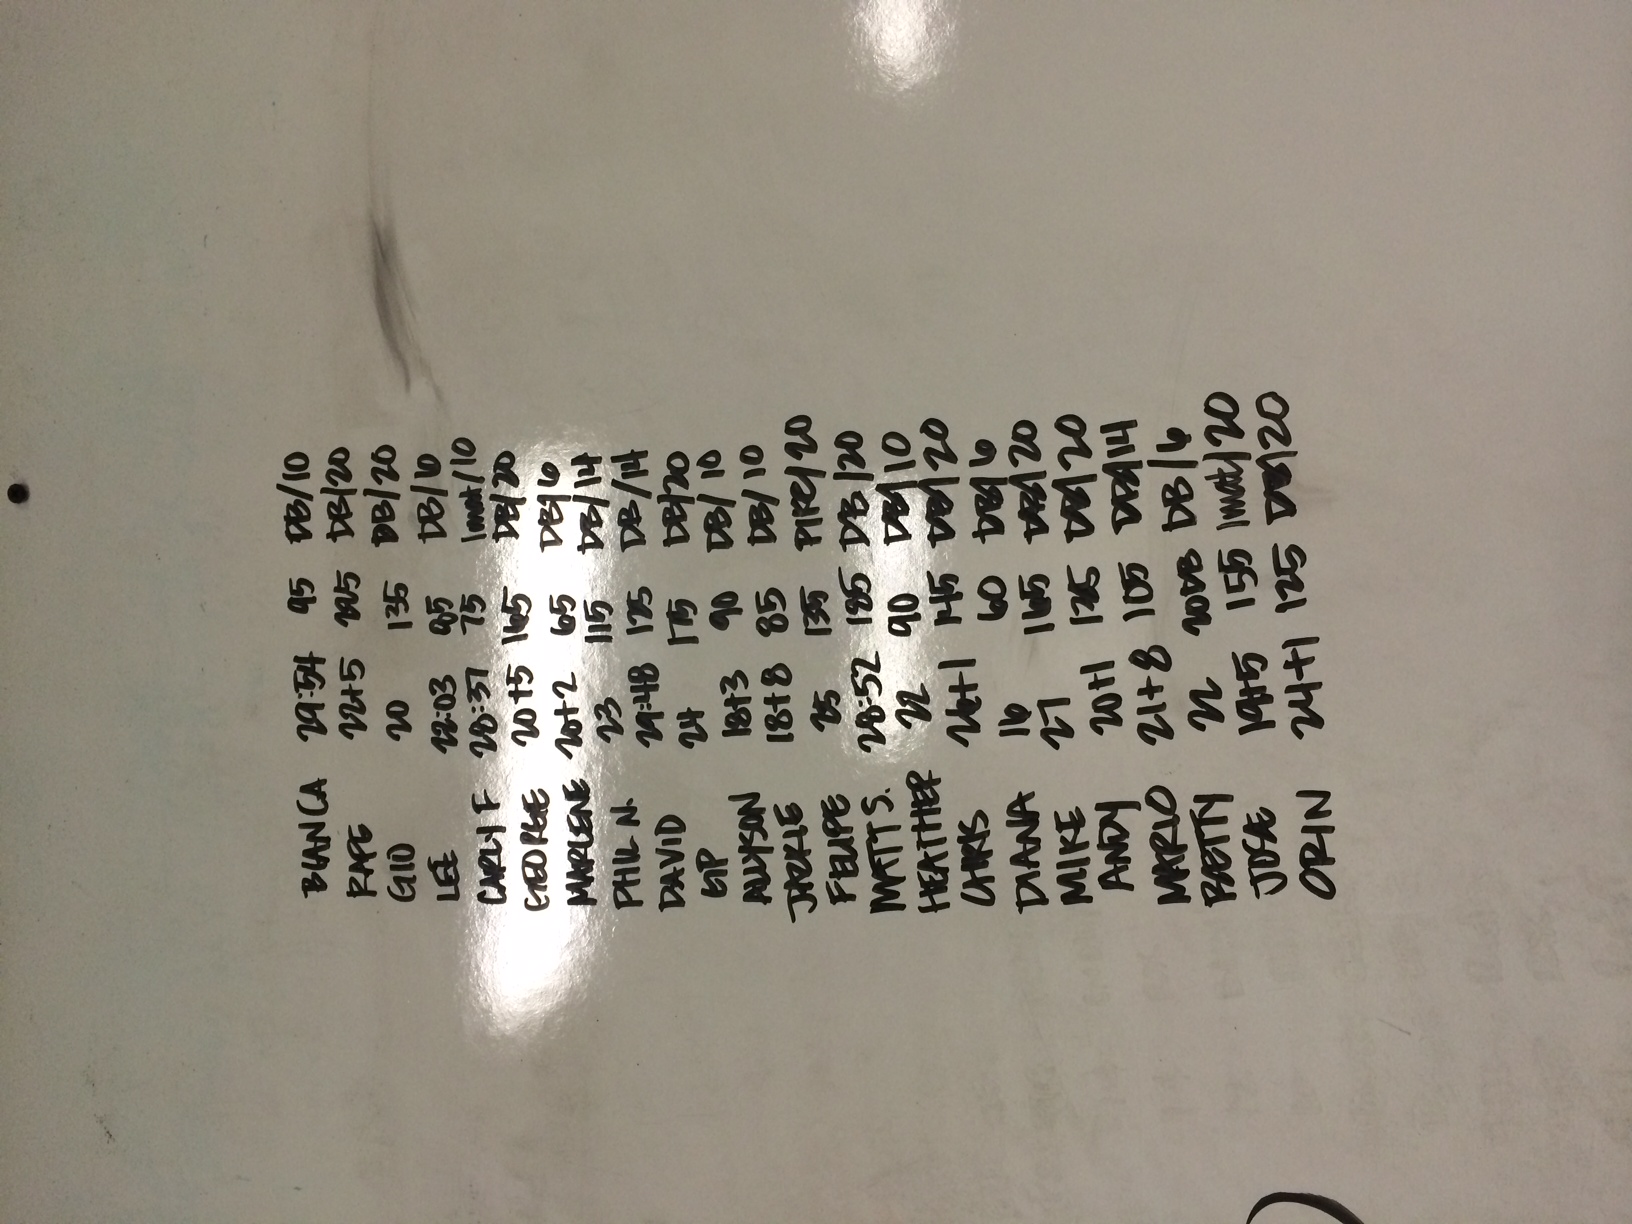 BIANCA 29:54 95 DB/10
RAFE 22+5 225 DB/20
GIO 20 135 DB/20
LEE 22:03 85 DB/10
CARLY F 28:37 75 /10
GEORGE 20+5 165 DB/20
MARLENE 20+2 65 DB/6
PHIL N. 23 115 DB/14
DAVID 29:48 125 DB/14
24 175 DB/20
ALLYSON 18+3 90 DB/10
JACKIE 18+8 85 DB/10
FELIPE 25 135 /20
MATT S. 28:52 185 DB/20
HEATHER 22 90 DB/10
CHRIS 26+1 145 DB/20
DIANA 16 60 DB/6
MIKE 27 165 DB/20
ANDY 20+1 135 DB/20
MARLO 21+8 105 DB/14
BETTY 22 20DB DB/6
JOSE 19+5 155 /20
ORIN 24+1 125 DB/20